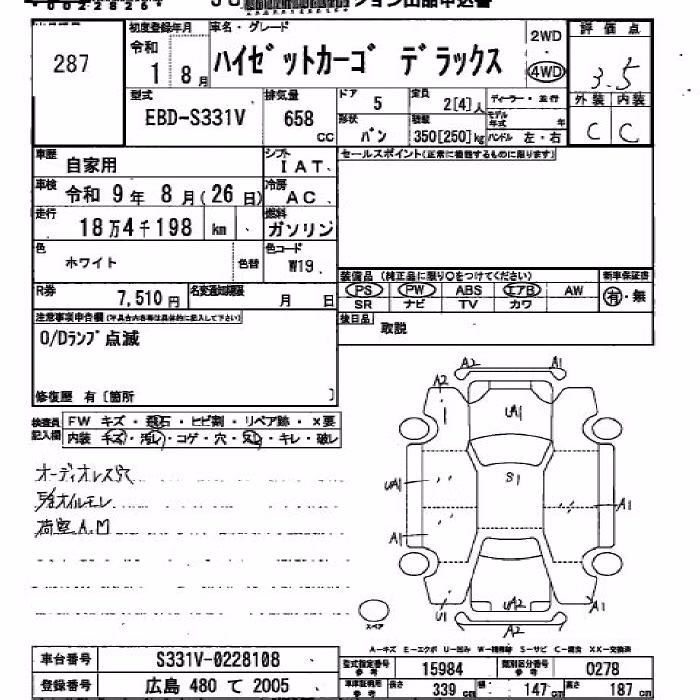 ション出品申込書
287
初度登録年月 車名・グレード 2WD 評価点
令和 1年 8月 ハイゼットカーゴ デラックス 4WD 3.5
型式 排気量 ドア 5 定員 2[4]人 ディーラー・並行 外装 内装
EBD-S331V 658 CC 形状 バン 積載 350[250]kg モデル年式 年 ハンドル 左・右 C C
車歴 自家用 シフト IAT. セールスポイント(正常に機能するものに限ります)
車検 令和 9年 8月(26日) 冷房 AC.
走行 18万4千198 km 燃料 ガソリン
色 ホワイト 色替 色コード W19.
装備品(純正品に限り○をつけてください) 新車保証書
PS PW ABS エアB AW 有・無
SR ナビ TV カワ
R券 7,510円 名変通知期限 月 日
後日品 取説
注意事項申告欄(不具合内容等は具体的に記入して下さい)
O/Dランプ点滅
修復歴 有〔箇所 〕
検査員記入欄 FW キズ・飛石・ヒビ割・リペア跡・X要
内装 キズ・汚レ・コゲ・穴・スレ・キレ・破レ
オーディオレス
オイルモレ
荷室A.M
A2 A1
A2
UA1
UA1 S1 A1
A1
U1 UA2 A1
A2
スペア
A-キズ E-エクボ U-凹み W-補修跡 S-サビ C-腐食 XX-交換済
車台番号 S331V-0228108
登録番号 広島 480 て 2005
型式指定番号 参考 15984 類別区分番号 参考 0278
車庫証明用 参考 長さ 339 cm 幅 147 cm 高さ 187 cm